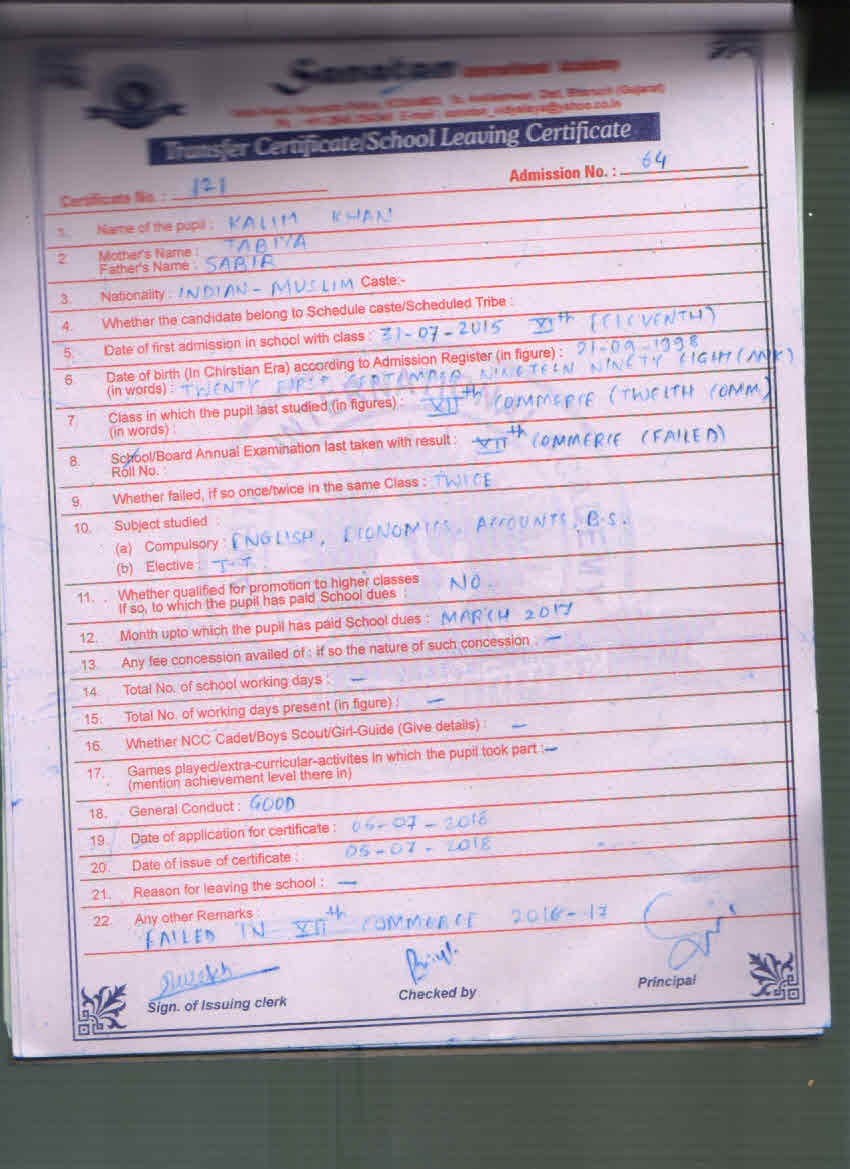 Sanatan International Academy
Ta. Ankleshwar, Dist. Bharuch (Gujarat)
vidyalaya@yahoo.co.in
Transfer Certificate/School Leaving Certificate
Certificate No. : 121
Admission No. : 64
1. Name of the pupil : KALIM KHAN
2. Mother's Name : TABIYA
Father's Name : SABIR
3. Nationality : INDIAN - MUSLIM Caste:-
4. Whether the candidate belong to Schedule caste/Scheduled Tribe :
5. Date of first admission in school with class : 31-07-2015 XIth (ELEVENTH)
6 Date of birth (In Chirstian Era) according to Admission Register (in figure) : 21-09-1998
(in words) : TWENTY FIRST SEPTEMBER NINETEEN NINETY EIGHT
7. Class in which the pupil last studied (in figures) : XIIth COMMERCE (TWELTH COMM)
(in words) :
8. School/Board Annual Examination last taken with result : XIIth COMMERCE (FAILED)
Roll No. :
9. Whether failed, if so once/twice in the same Class : TWICE
10. Subject studied :
(a) Compulsory : ENGLISH, ECONOMICS, ACCOUNTS, B.S.
(b) Elective : I.T.
11. Whether qualified for promotion to higher classes NO
If so, to which the pupil has paid School dues :
12. Month upto which the pupil has paid School dues : MARCH 2017
13. Any fee concession availed of : if so the nature of such concession : —
14. Total No. of school working days : —
15. Total No. of working days present (in figure) : —
16. Whether NCC Cadet/Boys Scout/Girl-Guide (Give details) : —
17. Games played/extra-curricular-activites in which the pupil took part :—
(mention achievement level there in)
18. General Conduct : GOOD
19. Date of application for certificate : 05-07-2018
20. Date of issue of certificate : 05-07-2018
21. Reason for leaving the school : —
22 Any other Remarks :
FAILED IN XIIth COMMERCE 2016-17
Sign. of Issuing clerk
Checked by
Principal